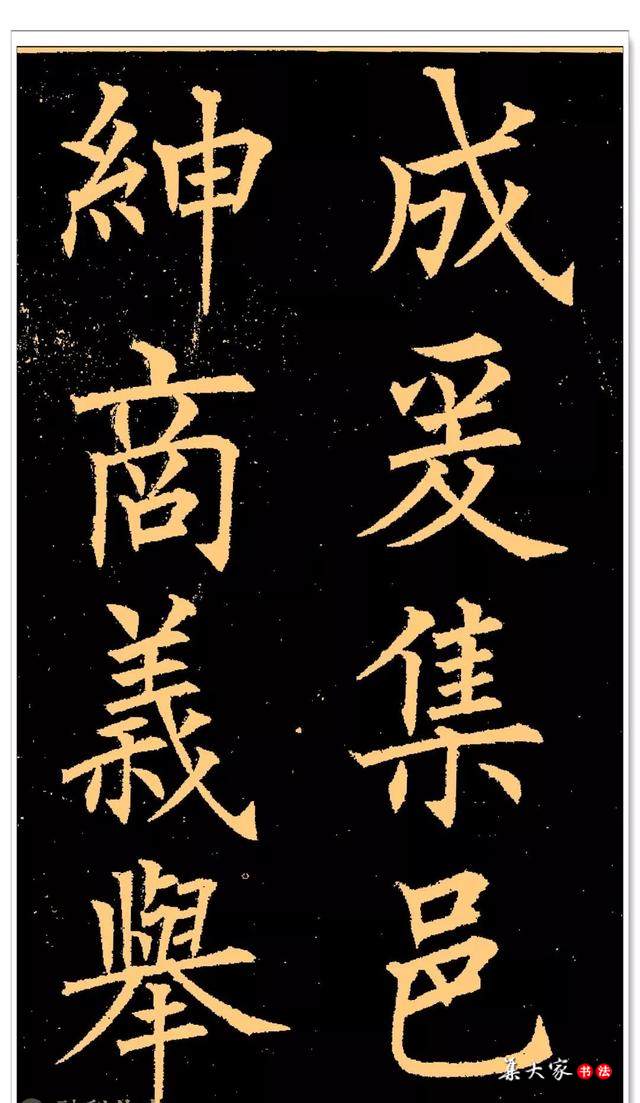 成爰集邑
紳商義舉
集大家书法